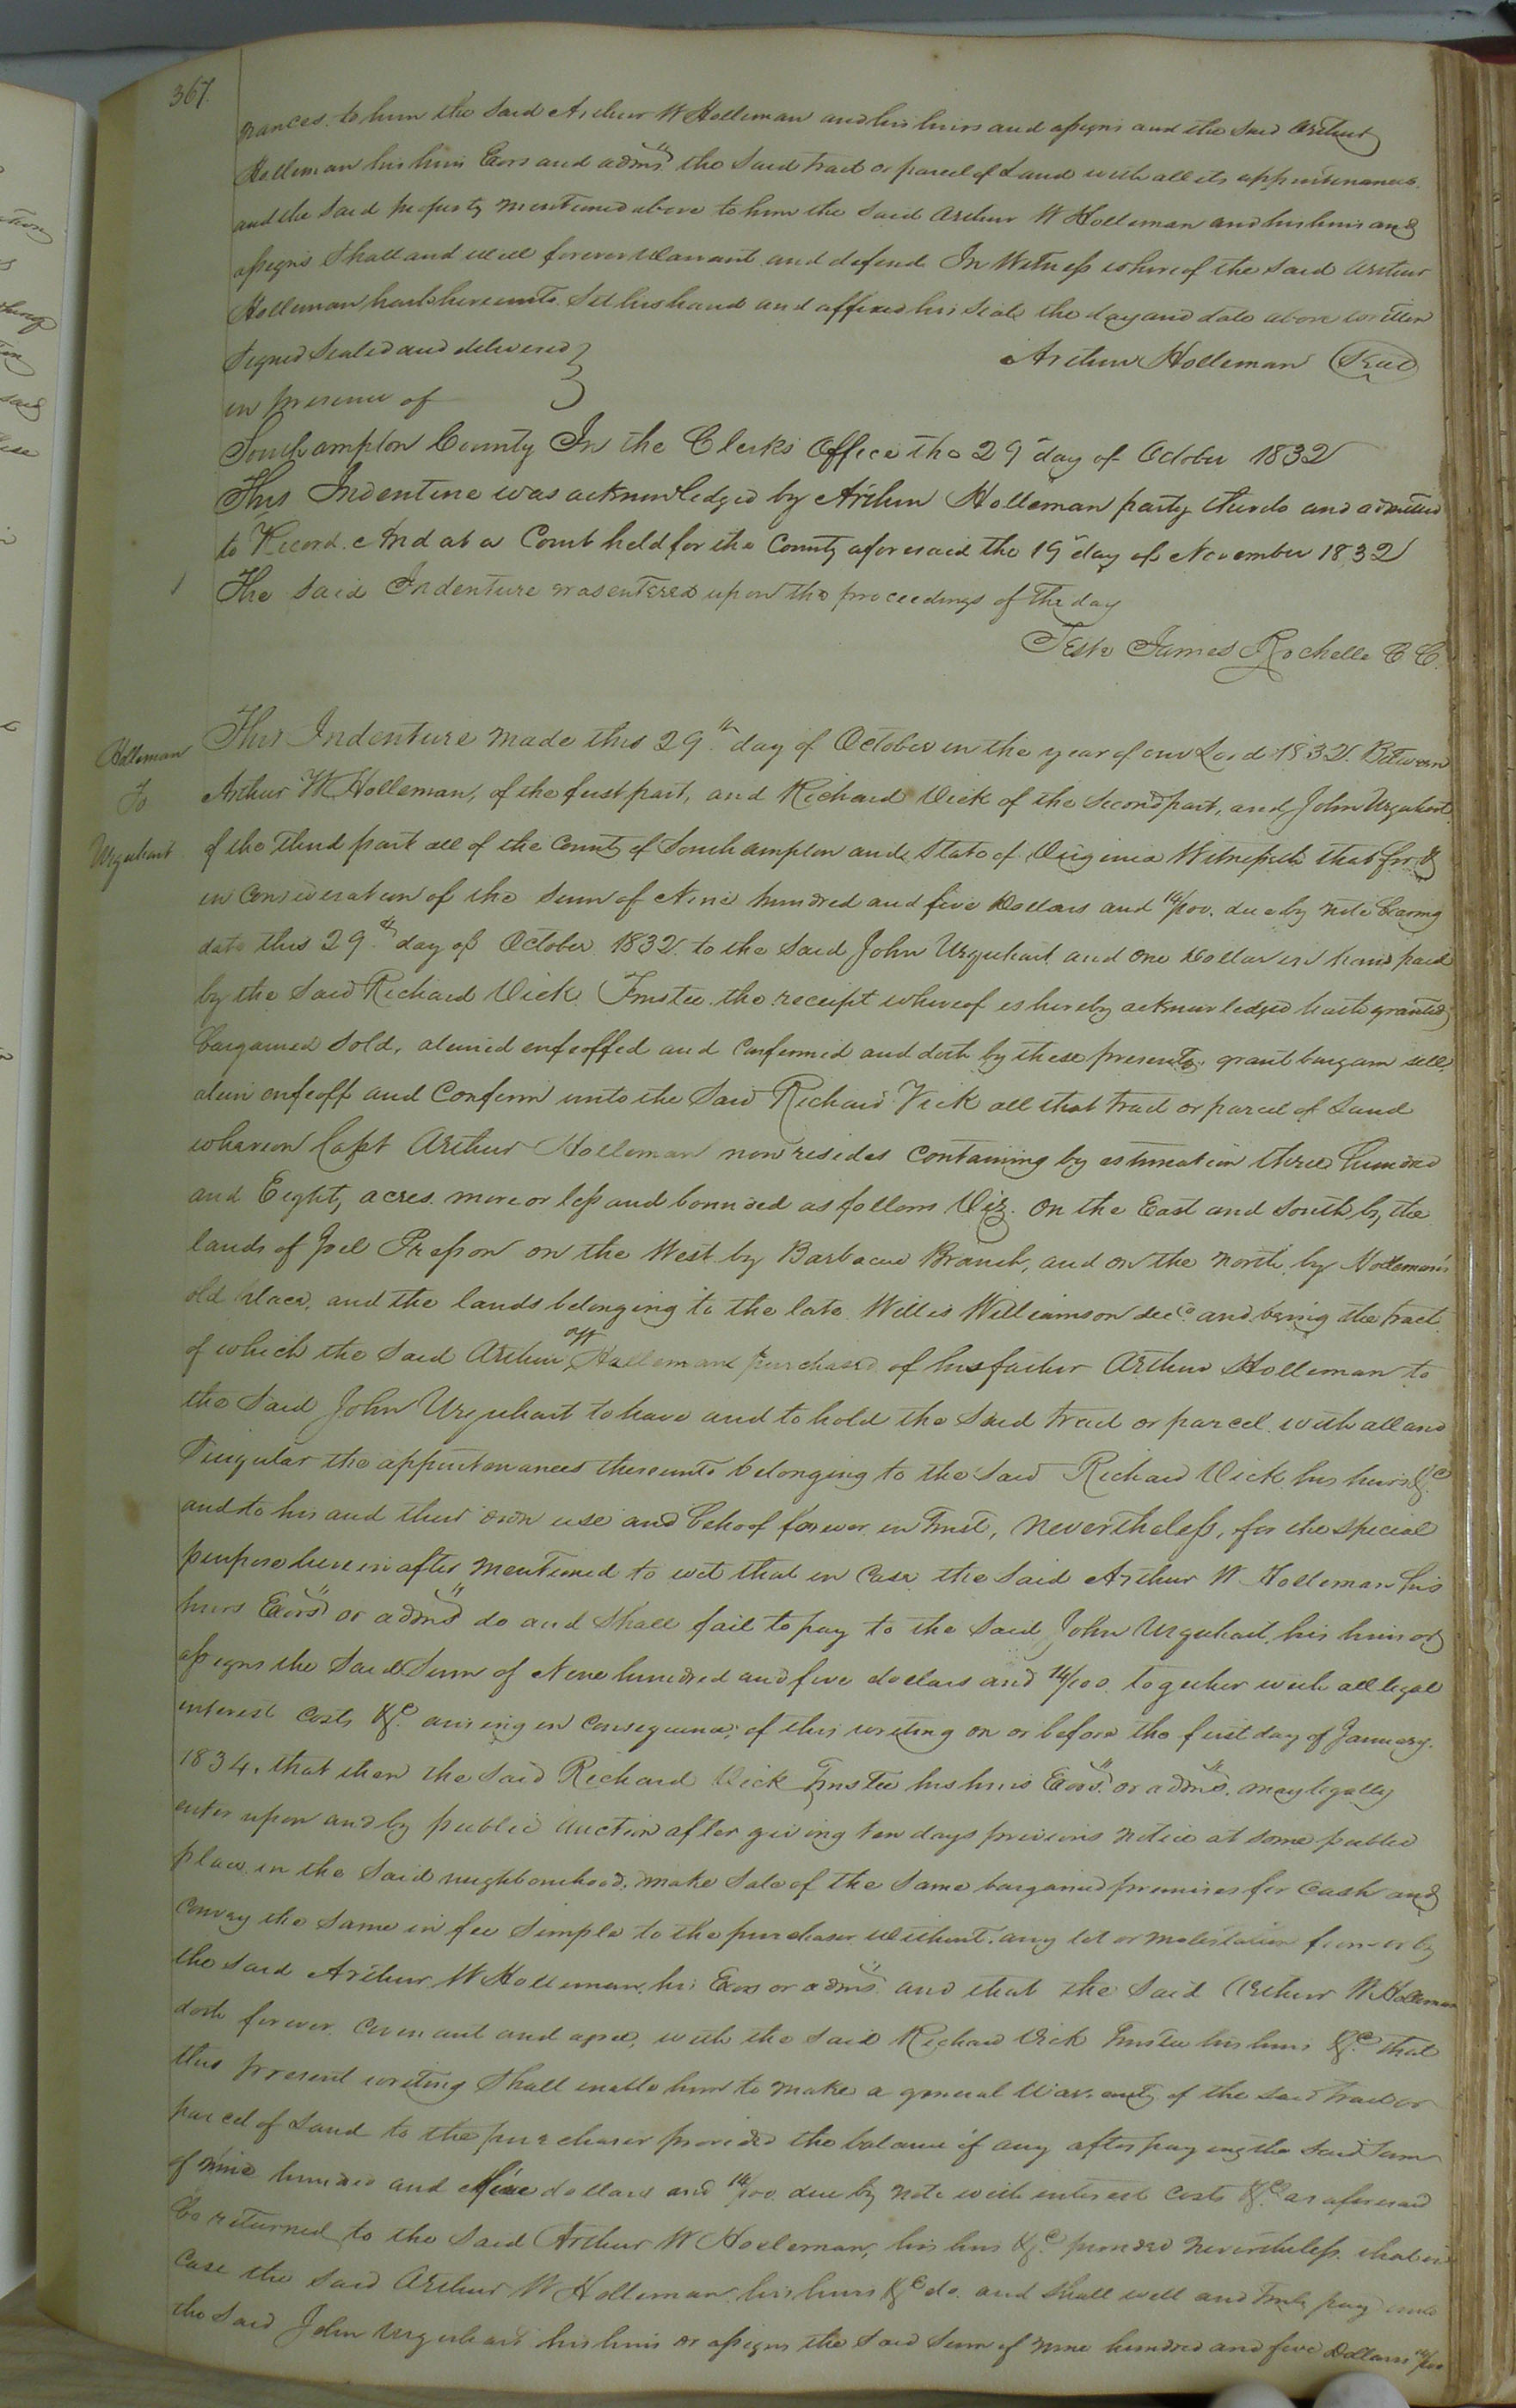 367.
nances to him the said Arthur W Holleman and his heirs and assigns and the said Arthur
Holleman his heirs Exors and adms. the said tract or parcel of Land with all its appurtenances
and the said property mentioned above to him the said Arthur W Holleman and his heirs and
assigns Shall and will forever Warrant and defend In Witness whereof the said Arthur
Holleman hath hereunto Set his hand and affixed his Seal the day and date above written
Signed Sealed and delivered } Arthur Holleman Seal
in presence of
Southampton County In the Clerks Office the 29 day of October 1832
This Indenture was acknowledged by Arthur Holleman party thereto and admitted
to Record. And at a Court held for the County aforesaid the 19 day of November 1832
The said Indenture was entered upon the proceedings of the day
Teste James Rochelle C C.
Holleman
To
Urquhart
This Indenture made this 29th day of October in the year of our Lord 1832. Between
Arthur W Holleman, of the first part, and Richard Vick of the Second part, and John Urquhart
of the third part all of the County of Southampton and State of Virginia Witnesseth that for &
in Consideration of the Sum of Nine hundred and five Dollars and 14/100. due by note bearing
date this 29th day of October 1832. to the said John Urquhart and one Dollar in hand paid
by the Said Richard Vick Trustee the receipt whereof is hereby acknowledged hath granted
bargained Sold, aliened enfeoffed and Confirmed and doth by these presents grant bargain sell,
alien enfeoff and Confirm unto the Said Richard Vick all that tract or parcel of Land
whereon Capt Arthur Holleman now resides Containing by estimation three hundred
and Eighty acres more or less and bounded as follows Viz. On the East and South by the
lands of Joel Presson on the West by Barbacue Branch, and on the North by Holleman's
old place, and the lands belonging to the late Willis Williamson decd. and being the tract
of which the Said Arthur W Holleman purchased of his father Arthur Holleman to
the Said John Urquhart to have and to hold the Said tract or parcel with all and
Singular the appurtenances thereunto belonging to the Said Richard Vick his heirs &c
and to his and their own use and behoof forever in Trust, nevertheless, for the special
purpose herein after mentioned to wit that in Case the Said Arthur W Holleman his
heirs Exors or adms do and Shall fail to pay to the Said John Urquhart, his heirs or
assigns the Said Sum of Nine hundred and five dollars and 14/100. together with all legal
interest Costs &c. arising in Consequence, of this writing on or before the first day of January.
1834, that then the Said Richard Vick Trustee his heirs Exors. or adms. may legally
enter upon and by public auction after giving ten days previous notice at some public
place in the Said neighbourhood, make Sale of the Same bargained premises for Cash and
Convey the Same in fee Simple to the purchaser without any let or molestation from or by
the Said Arthur W Holleman, his Exors or adms and that the Said Arthur W Holleman
doth forever Covenant and agree, with the Said Richard Vick Trustee his heirs &c. that
this present writing Shall enable him to make a general Warranty of the said Tract or
parcel of Land to the purchaser provided the balance if any after paying the Said Sum
of nine hundred and five dollars and 14/100. due by note with interest Costs &c as aforesaid
be returned to the Said Arthur W Holleman, his heirs &c. provided nevertheless that in
Case the Said Arthur W Holleman his heirs &c do and shall well and truly pay unto
the Said John Urquhart his heirs or assigns the Said Sum of nine hundred and five Dollars 14/100